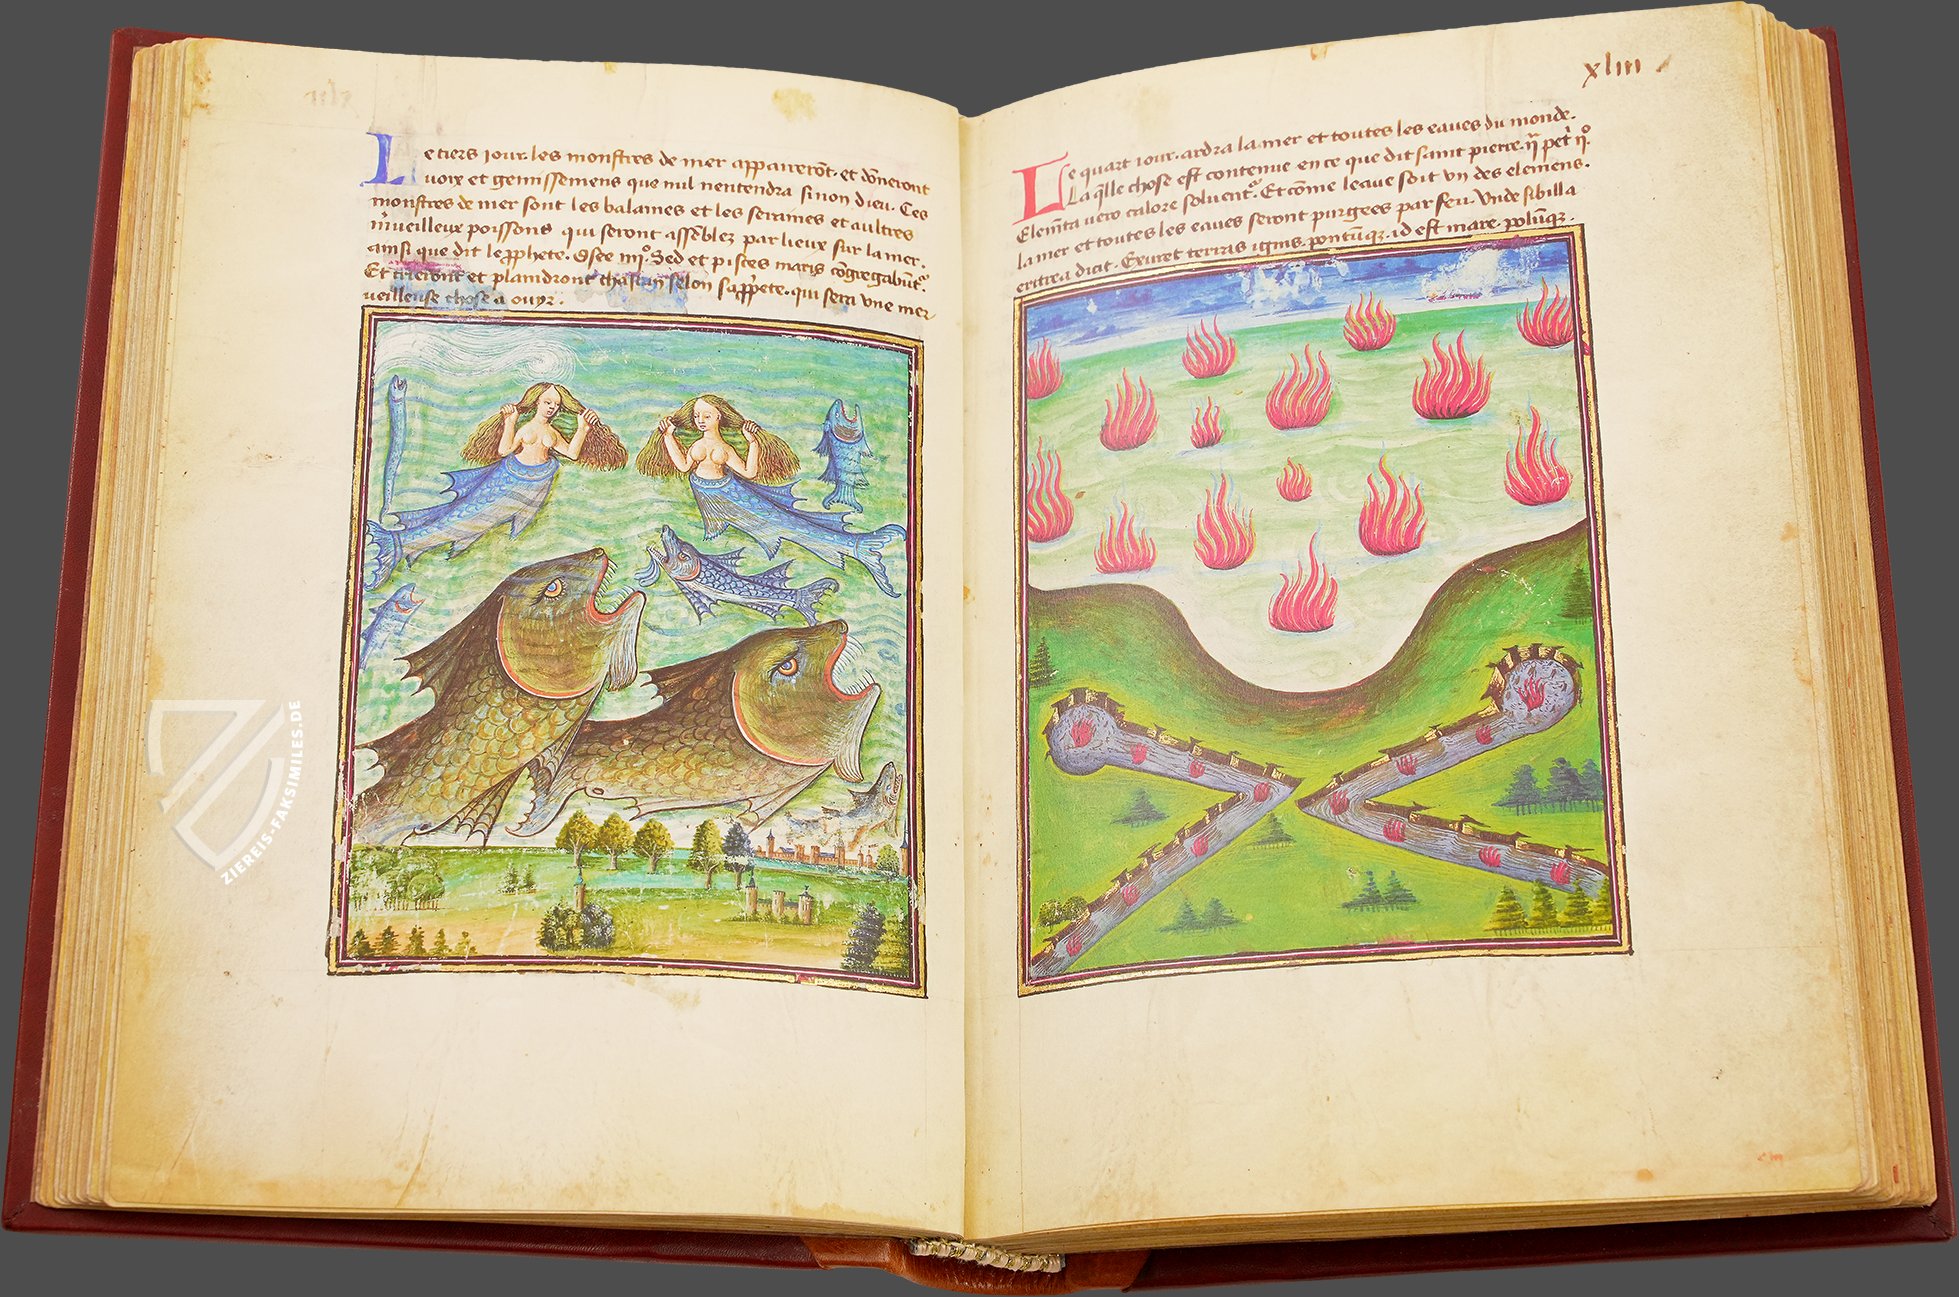 Le tiers iour. les monstres de mer appairerōt. et dōneront
voix et gemissemens que nul nentendra sinon dieu. Ces
monstres de mer sont les balaines et les seraines et aultres
m̄ueilleux poissons qui seront assēblez par lieux sur la mer.
ainsi que dit le ꝓphete. Osee iiijº. Sed et pisces maris cōngregabūt᷑.
Et crieront et plaindront chascun selon sa
qui sera vne mer
ueilleuse chose a ouyr.
xliiii
Le quart iour. ardra la mer et toutes les eaues du monde.
La q̄lle chose est contenue en ce que dit saint pierre. ij pet̄ ijº.
Elemēta uero calore soluent᷑. Et cōme leaue soit vn des elemens.
la mer et toutes les eaues seront purgees par feu. Vnde sibilla
eritrea dicit. Exuret terras ignis. pontūqꝫ. id est mare. polūqꝫ.
ZIEREIS-FAKSIMILES.DE